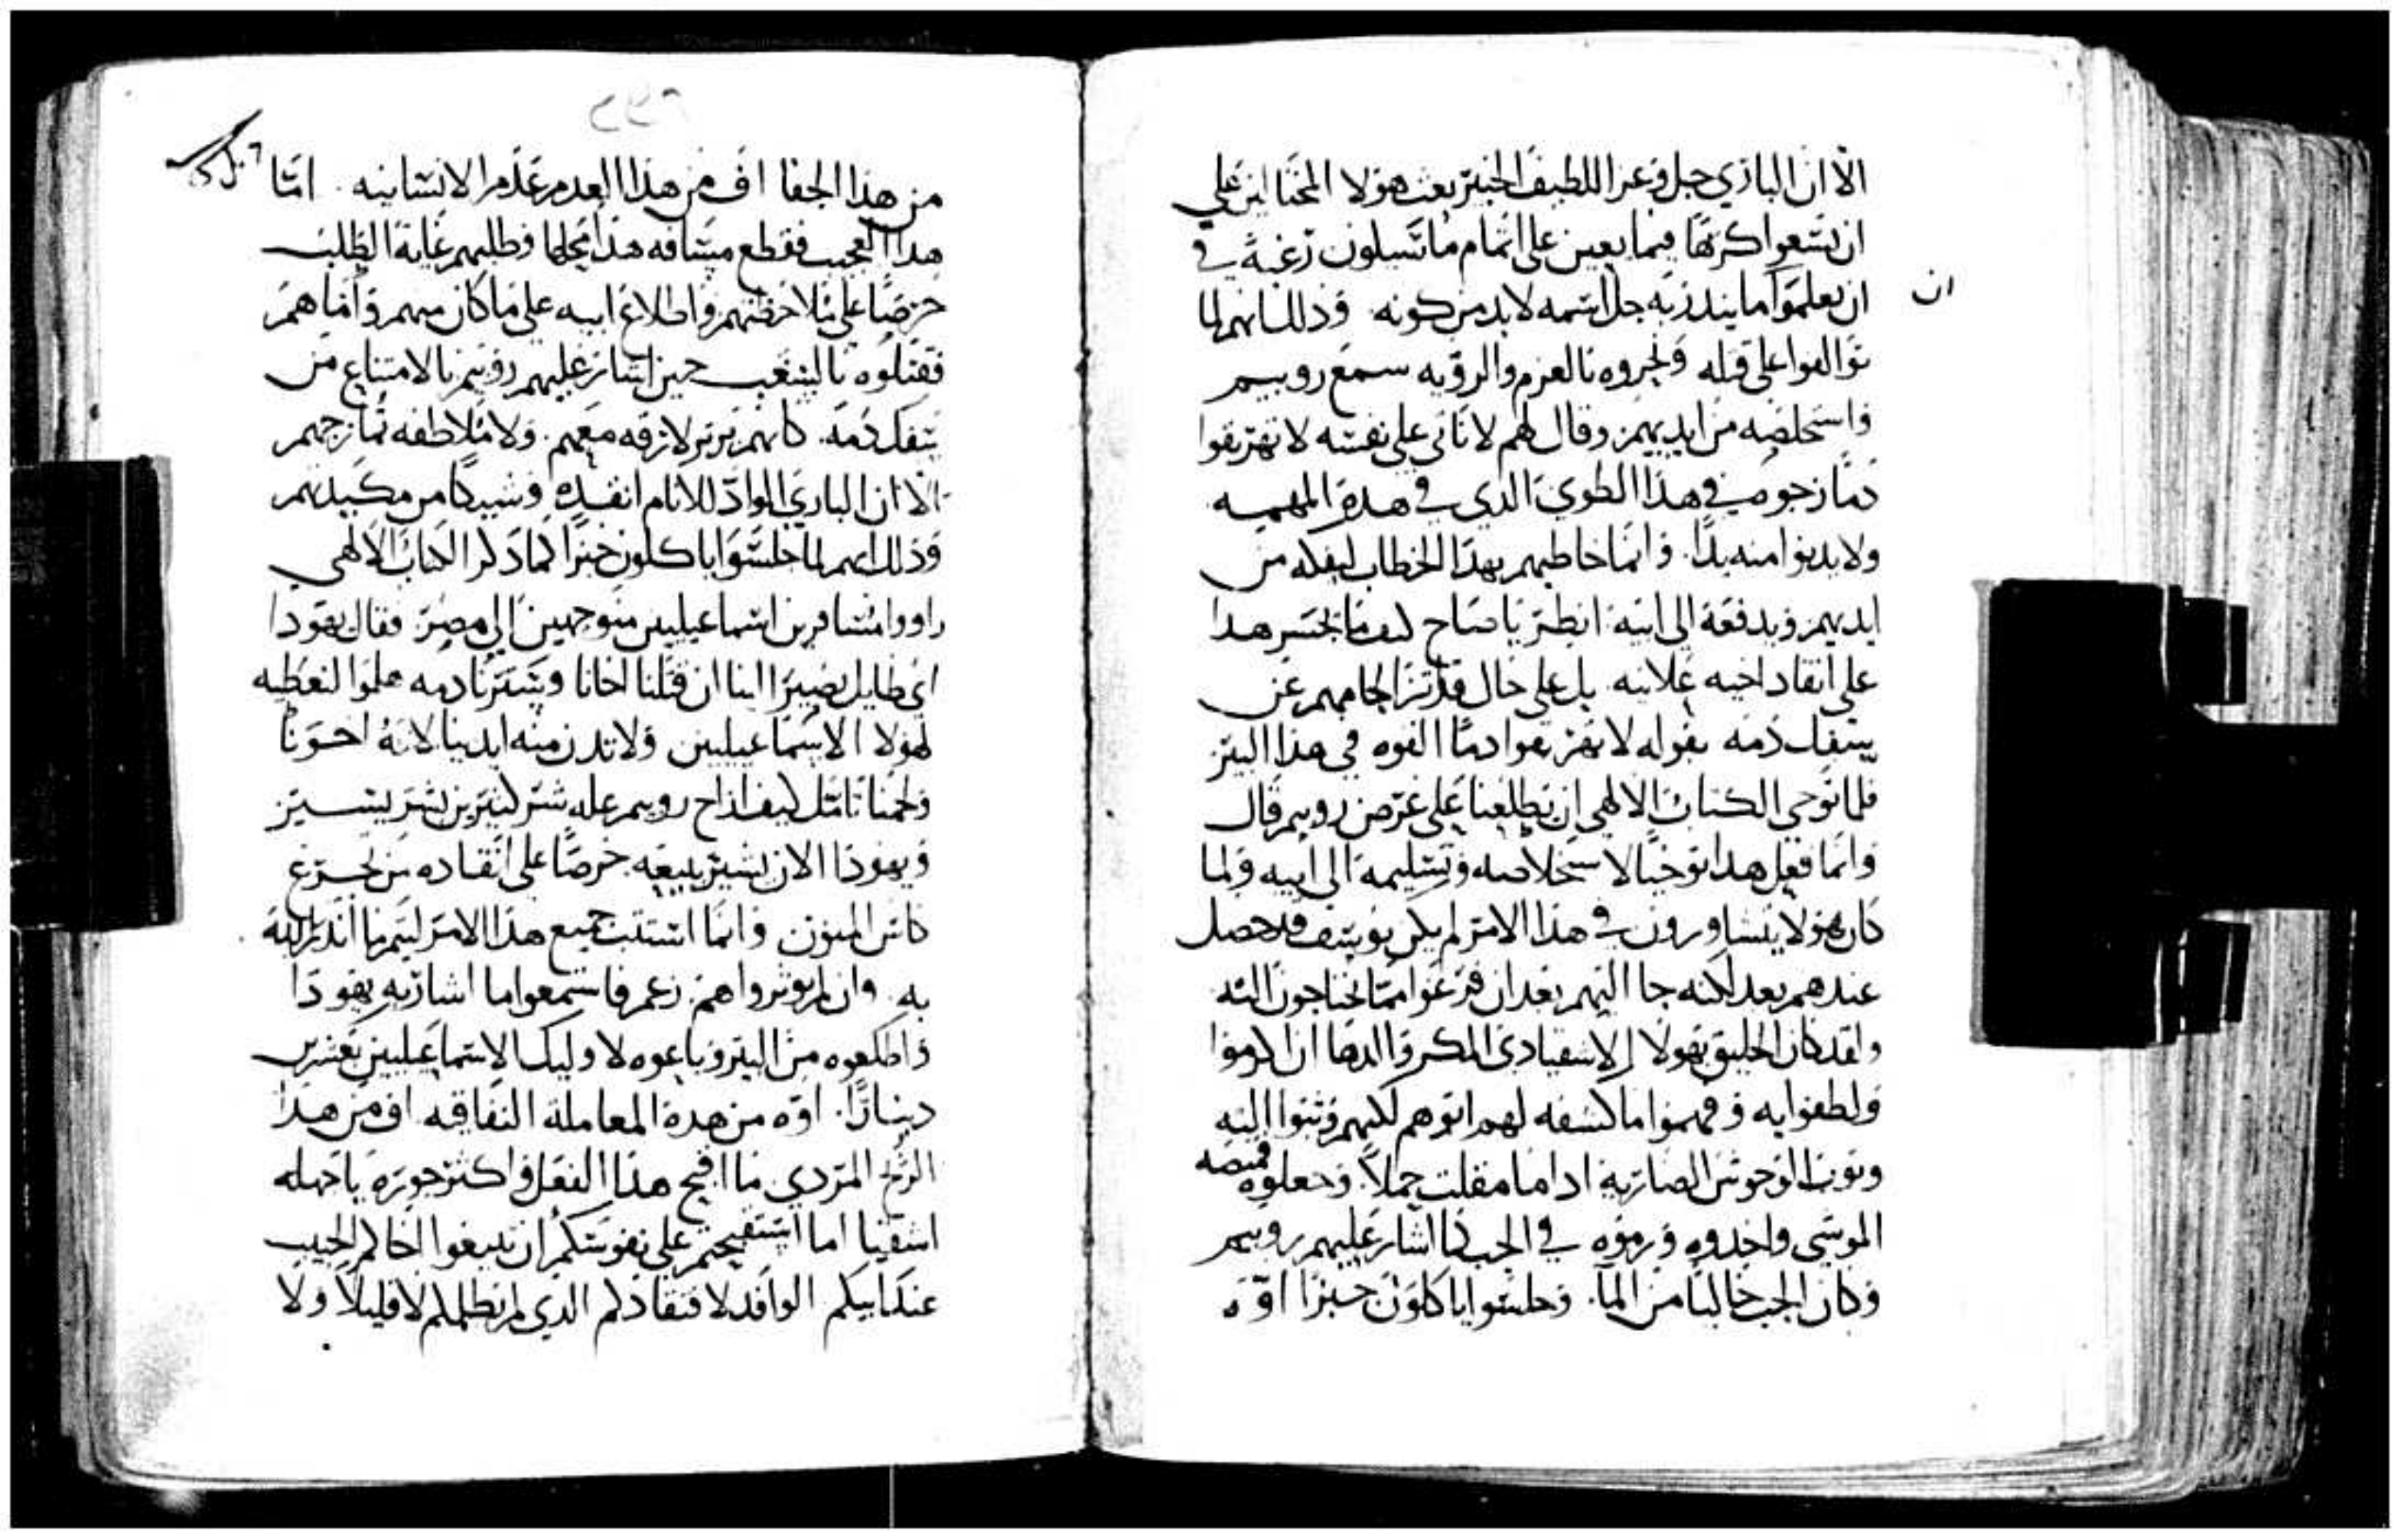 الا ان الباري جل وعز اللطيف الخبير بعث هولا المختالين علي
ان يسعوا كرها فيما يعين على اتمام ما تسيلون رغبة في
ان
ان يعلموا ما ينذر به جل اسمه لا بد من كونه وذلك انهم لما
توالفوا على قتله ونجروه بالعزم والرويه سمع روبيم
واستخلصه من ايديهم وقال لهم لا ناتي على نفسه لا تهريقوا
دما زجوه في هذا الطوي الذي في هذه المهمه
ولا يدنوا منه يدا وانما خاطبهم بهذا الخطاب ليفكه من
ايديهم ويدفعه الى ابيه انظر يا صاح كيف ما يجسر هذا
على انقاد اخيه علانيه بل على حال قد تزا لجامهم عن
سفك دمه بقوله لا تهريقوا دما القوه في هذا البير
فلما توخي الكتاب الالهي ان يطلعنا على غرض روبيم قال
وانما فعل هذا توخيا لاستخلاصه وتسليمه الي ابيه ولما
كان هولا يتشاورون في هذا الامر لم يكن يوسف قد حصل
عندهم بعد لكنه جا اليهم بعد ان فرغوا مما يحتاجون اليه
ولقد كان الخليق بهولا الاشقيا دي المكر والدها ان اكرموا
ولطفوا به وفهموا ما كشفه لهم ابوهم لكنهم وثبوا اليه
وثوب الوحوش الضاريه اذا ما مقلت حملا وجعلوه قميصه
الموشي واخدوه ورموه في الجب كما اشار عليهم روبيم
وكان الجب خاليا من الما وجلسوا ياكلون خبزا اوه
من هذا الجفا اف من هذا العدم عدم الانسانيه اما
هذا العجيب فقطع مسافه هذا محلها وطلبهم غاية الطلب
حرصا على ملاحظتهم واطلاع ابيه على ما كان منهم واما هم
فقتلوه بالشغب حين اشار عليهم روبيم بالامتناع من
سفك دمه كانهم بربر لا رقه معهم ولا ملاطفه تمازجهم
الا ان الباري الواد للانام انقذه وشيكا من مكيدتهم
وذلك انهم لما جلسوا ياكلون خبزا كما ذكر الكتاب الالهي
راووا مسافرين اسماعيليين متوجهين الي مصر فقال يهودا
اي طايل يصير الينا ان قتلنا اخانا وسترنا دمه هلموا لنعطيه
لهولا الاسماعيليين ولا تدن منه ايدينا لانه اخونا
ولحمنا تامل كيف ازاح روبيم عله شر كبير بشر يسير
ويهودا الان يشير ببيعه حرصا على انقاده من تجرع
كاس المنون وانما استتب جميع هذا الامر ليتم ما انذر الله
به وان لم يوثروا هم زعم فاستمعوا ما اشار به يهودا
واطلعوه من البير وباعوه لاوليك الاسماعيليين بعشرين
دينارا اوه من هذه المعاملة النفاقيه اف من هذا
الربح المردي ما اقبح هذا الفعل واكثر جوره يا جهله
اشقيا اما استقبحتم على نفوسكم ان تبيعوا اخاكم الحبيب
عند ابيكم الوافد لافتقادكم الذي لم يظلمكم لا قليلا ولا